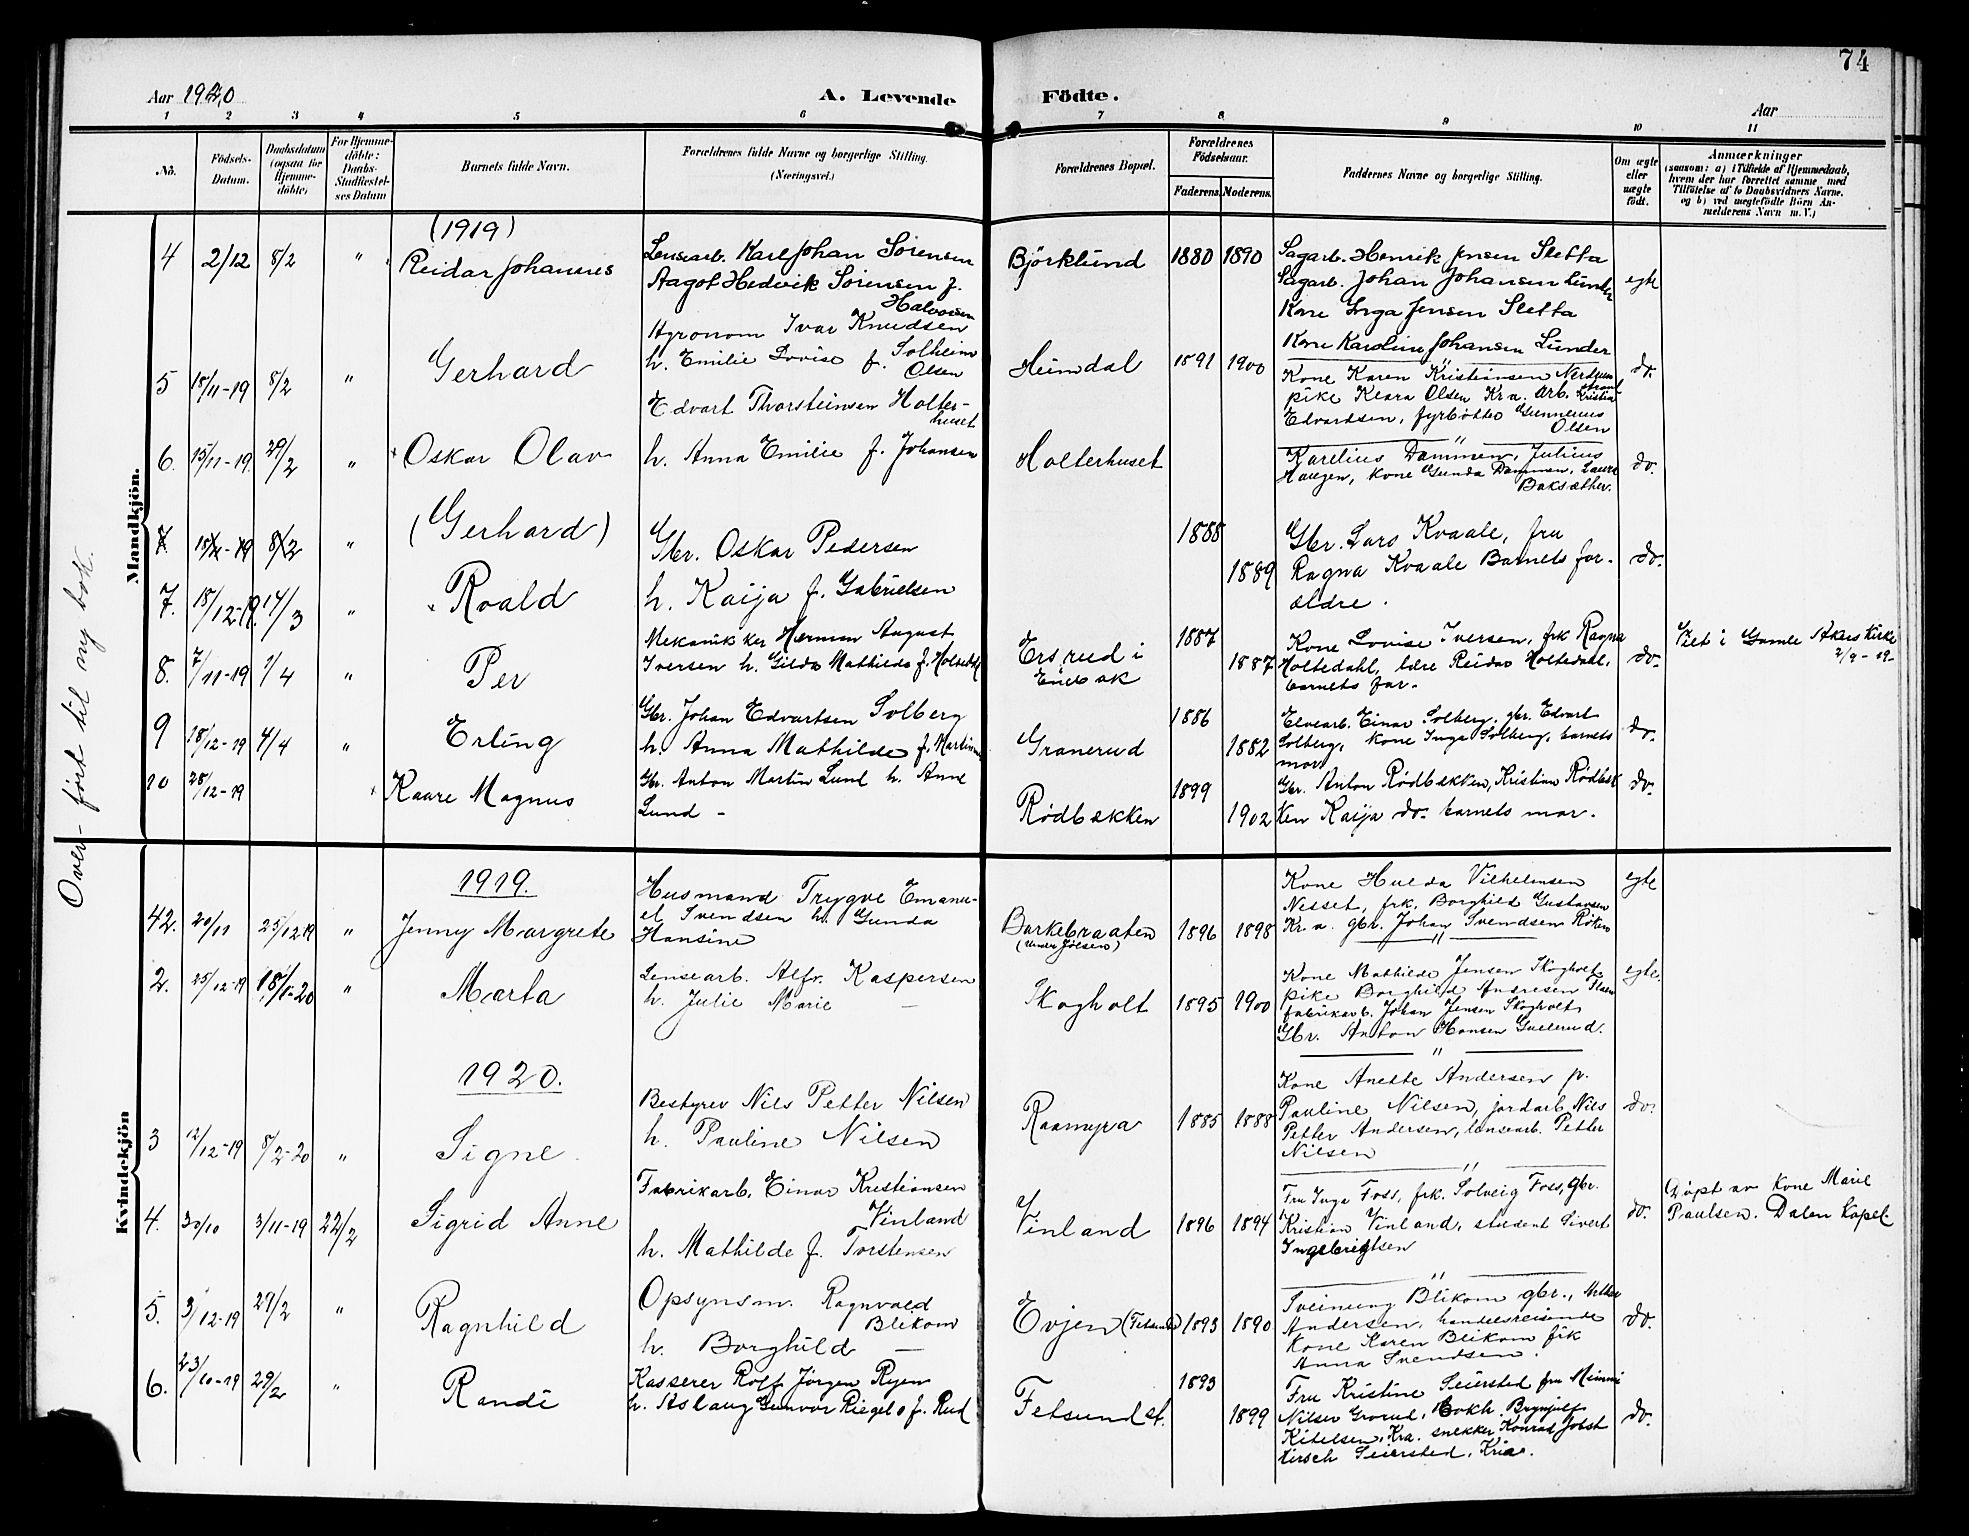 74
Aar 1920
A. Levende
Födte.
Aar
1 2 3 4 5 6 7 8 9 10 11
No.
Födsels-
Datum.
Daabsdatum
(ogsaa for
Hjemme-
döbte)
For Hjemme-
döbte:
Daabs-
Stadfæstel-
ses Datum
Barnets fulde Navn.
Forældrenes fulde Navne og borgerlige Stilling.
(Næringsvei.)
Forældrenes Bopæl.
Forældrenes
Födselsaar.
Faderens. Moderens.
Faddernes Navne og borgerlige Stilling.
Om ægte
eller
uægte
födt.
Anmærkninger
(saasom: a) i Tilfælde af Hjemmedaab,
hvem der har forrettet samme med
Tilföielse af to Daabsvidners Navne.
og b) ved uægtefödte Börn An-
melderens Navn m. V.)
Over-ført til ny bok.
Mandkjön.
(1919)
4 2/12 8/2 " Reidar Johannes
Lensearb. Karl Johan Sörensen
Aagot Hedvik Sörensen f.
Halvorsen
Björklund 1880 1890
Sagarb. Henrik Jensen Sletta
Sagarb. Johan Johansen Lunder
Kone Inga Jensen Sletta
Kone Karoline Johansen Lunder
egte
5 18/11-19 8/2 " Gerhard
Agronom Ivar Knudsen
Solheim
h. Emilie Lovise f. Olsen
Heimdal 1891 1900
Kone Karen Kristiansen Nerdrum
pike Klara Olsen Kr.a. Arb. Kristian
Edvardsen, fyrbøtter Gunnerius
Olsen
do.
6. 15/11-19. 29/2 " Oskar Olav
Edvart Thorsteinsen Holter-
huset
h. Anna Emilie f. Johansen
Holterhuset
Karelius Dammen, Julius
Haugen, kone Gunda Dammen, Laura
Baksæther.
do.
7. 15/11-19 8/2 " (Gerhard)
7. 18/12-19. 14/3 " Roald
Gbr. Oskar Pedersen
h. Kaija f. Gabrielsen
1888
1889
Gbr. Lars Kvaale, fru
Ragna Kvaale Barnets for-
ældre.
do.
8. 7/11-19 1/4 " Per
Mekaniker Herman August
Iversen h. Gilda Mathilda f. Holtedahl
Ersrud i
Enebak
1887
1887
Kone Lovise Iversen, frk Ragna
Holtedahl, lære Reidar Holtedahl,
barnets far.
do.
Viet i Gamle Akers Kirke
2/9-19-
9 18/12-19 4/4 " Erling
Gbr. Johan Edvartsen Solberg
h. Anna Mathilde f. Martinsen
Granerud
1886
1882
Elvearb. Einar Solberg, gbr. Edvart
Solberg, kone Inga Solberg, barnets
mor
do.
10 28/12-19 Kaare Magnus
Gbr. Anton Martin Lund h. Anne
Lund -
Rødbækken
1899
1902
Gbr. Anton Rødbækken, Kristian Rødbæk
ken Kaija do. barnets mor.
do.
Kvindekjön
1919.
42. 20/11 25/12 19 " Jenny Margrete
Husmand Trygve Emanu-
el Svendsen h. Gunda
Hansine
Barkebraaten
(under Jölsen)
1896 1898
Kone Hulda Vilhelmsen
Nesset, frk. Borghild Gustavsen
Kr.a. gbr. Johan Svendsen Röken
egte
2. 25/12-19 18/1-20 " Marta
Lensearb. Alfr. Kaspersen
h. Julie Marie —
Skogholt 1895 1900
Kone Mathilde Jensen Skogholt
pike Borghild Andresen
fabrikarb. Johan Jensen Skogholt
Gbr. Anton Hansen Gullerud.
egte.
1920.
3 12/12-19 8/2-20 " Signe
Bestyrer Nils Petter Nilsen
h. Pauline Nilsen
Raamyra 1885 1888
Kone Anette Andersen p.
Pauline Nilsen, jordarb. Nils
Petter Andersen, lensearb. Petter
Nilsen
do.
4. 30/10 3/11-19 22/2 Sigrid Anne
Fabrikarb. Einar Kristiansen
Vinland
h. Mathilde f. Torstensen
Vinland 1896 1894
Fru Inga Foss, frk. Solveig Foss, gbr.
Kristian Vinland, student Sivert
Ingebrigtsen
do.
Døpt av kone Marie
Paulsen. Dalen kapel.
5. 3/12-19 29/2 " Ragnhild
Opsynsm. Ragnvald
Blikom
h. Borghild —
Evjen (Fetsund) 1893 1890
Sveinung Blikom gbr.,
Andersen, handelsreisende
Kone Karen Blikom frk
Anna Svendsen.
do.
6. 23/10-19 29/2 " Randi
Kasserer Rolf Jörgen Ryen
h. Aslaug Gunvor Riegels f. Rud
Fetsund st.
1893
1899
Fru Kristine Seiersted fru Mimmi
Nilsen Grorud, Bokh. Brynjulf
Kitelsen, Kra. snekker Konrad Jobst
Hirsch Seiersted, Kria.
do.